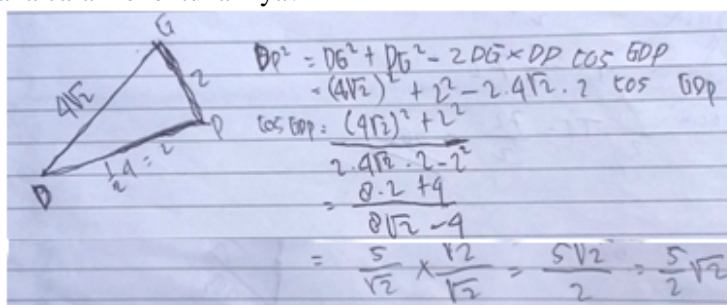 G
4√2
2
P
D
½4 = 2
DP² = DG² + DG² - 2DG × DP cos GDP
= (4√2)² + 2² - 2.4√2 . 2 cos GDP
cos GDP = (4√2)² + 2² / 2.4√2 . 2 - 2²
= 8.2 + 4 / 8√2 - 4
= 5/√2 × √2/√2 = 5√2/2 = 5/2 √2